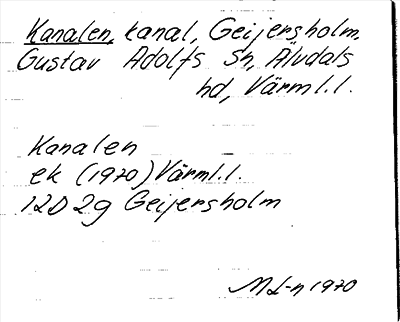 Kanalen, kanal, Geijersholm,
Gustav Adolfs sn, Älvdals
hd, Värml.l.
Kanalen
ek (1970) Värml.l.
12D 2g Geijersholm
M L-n 1970